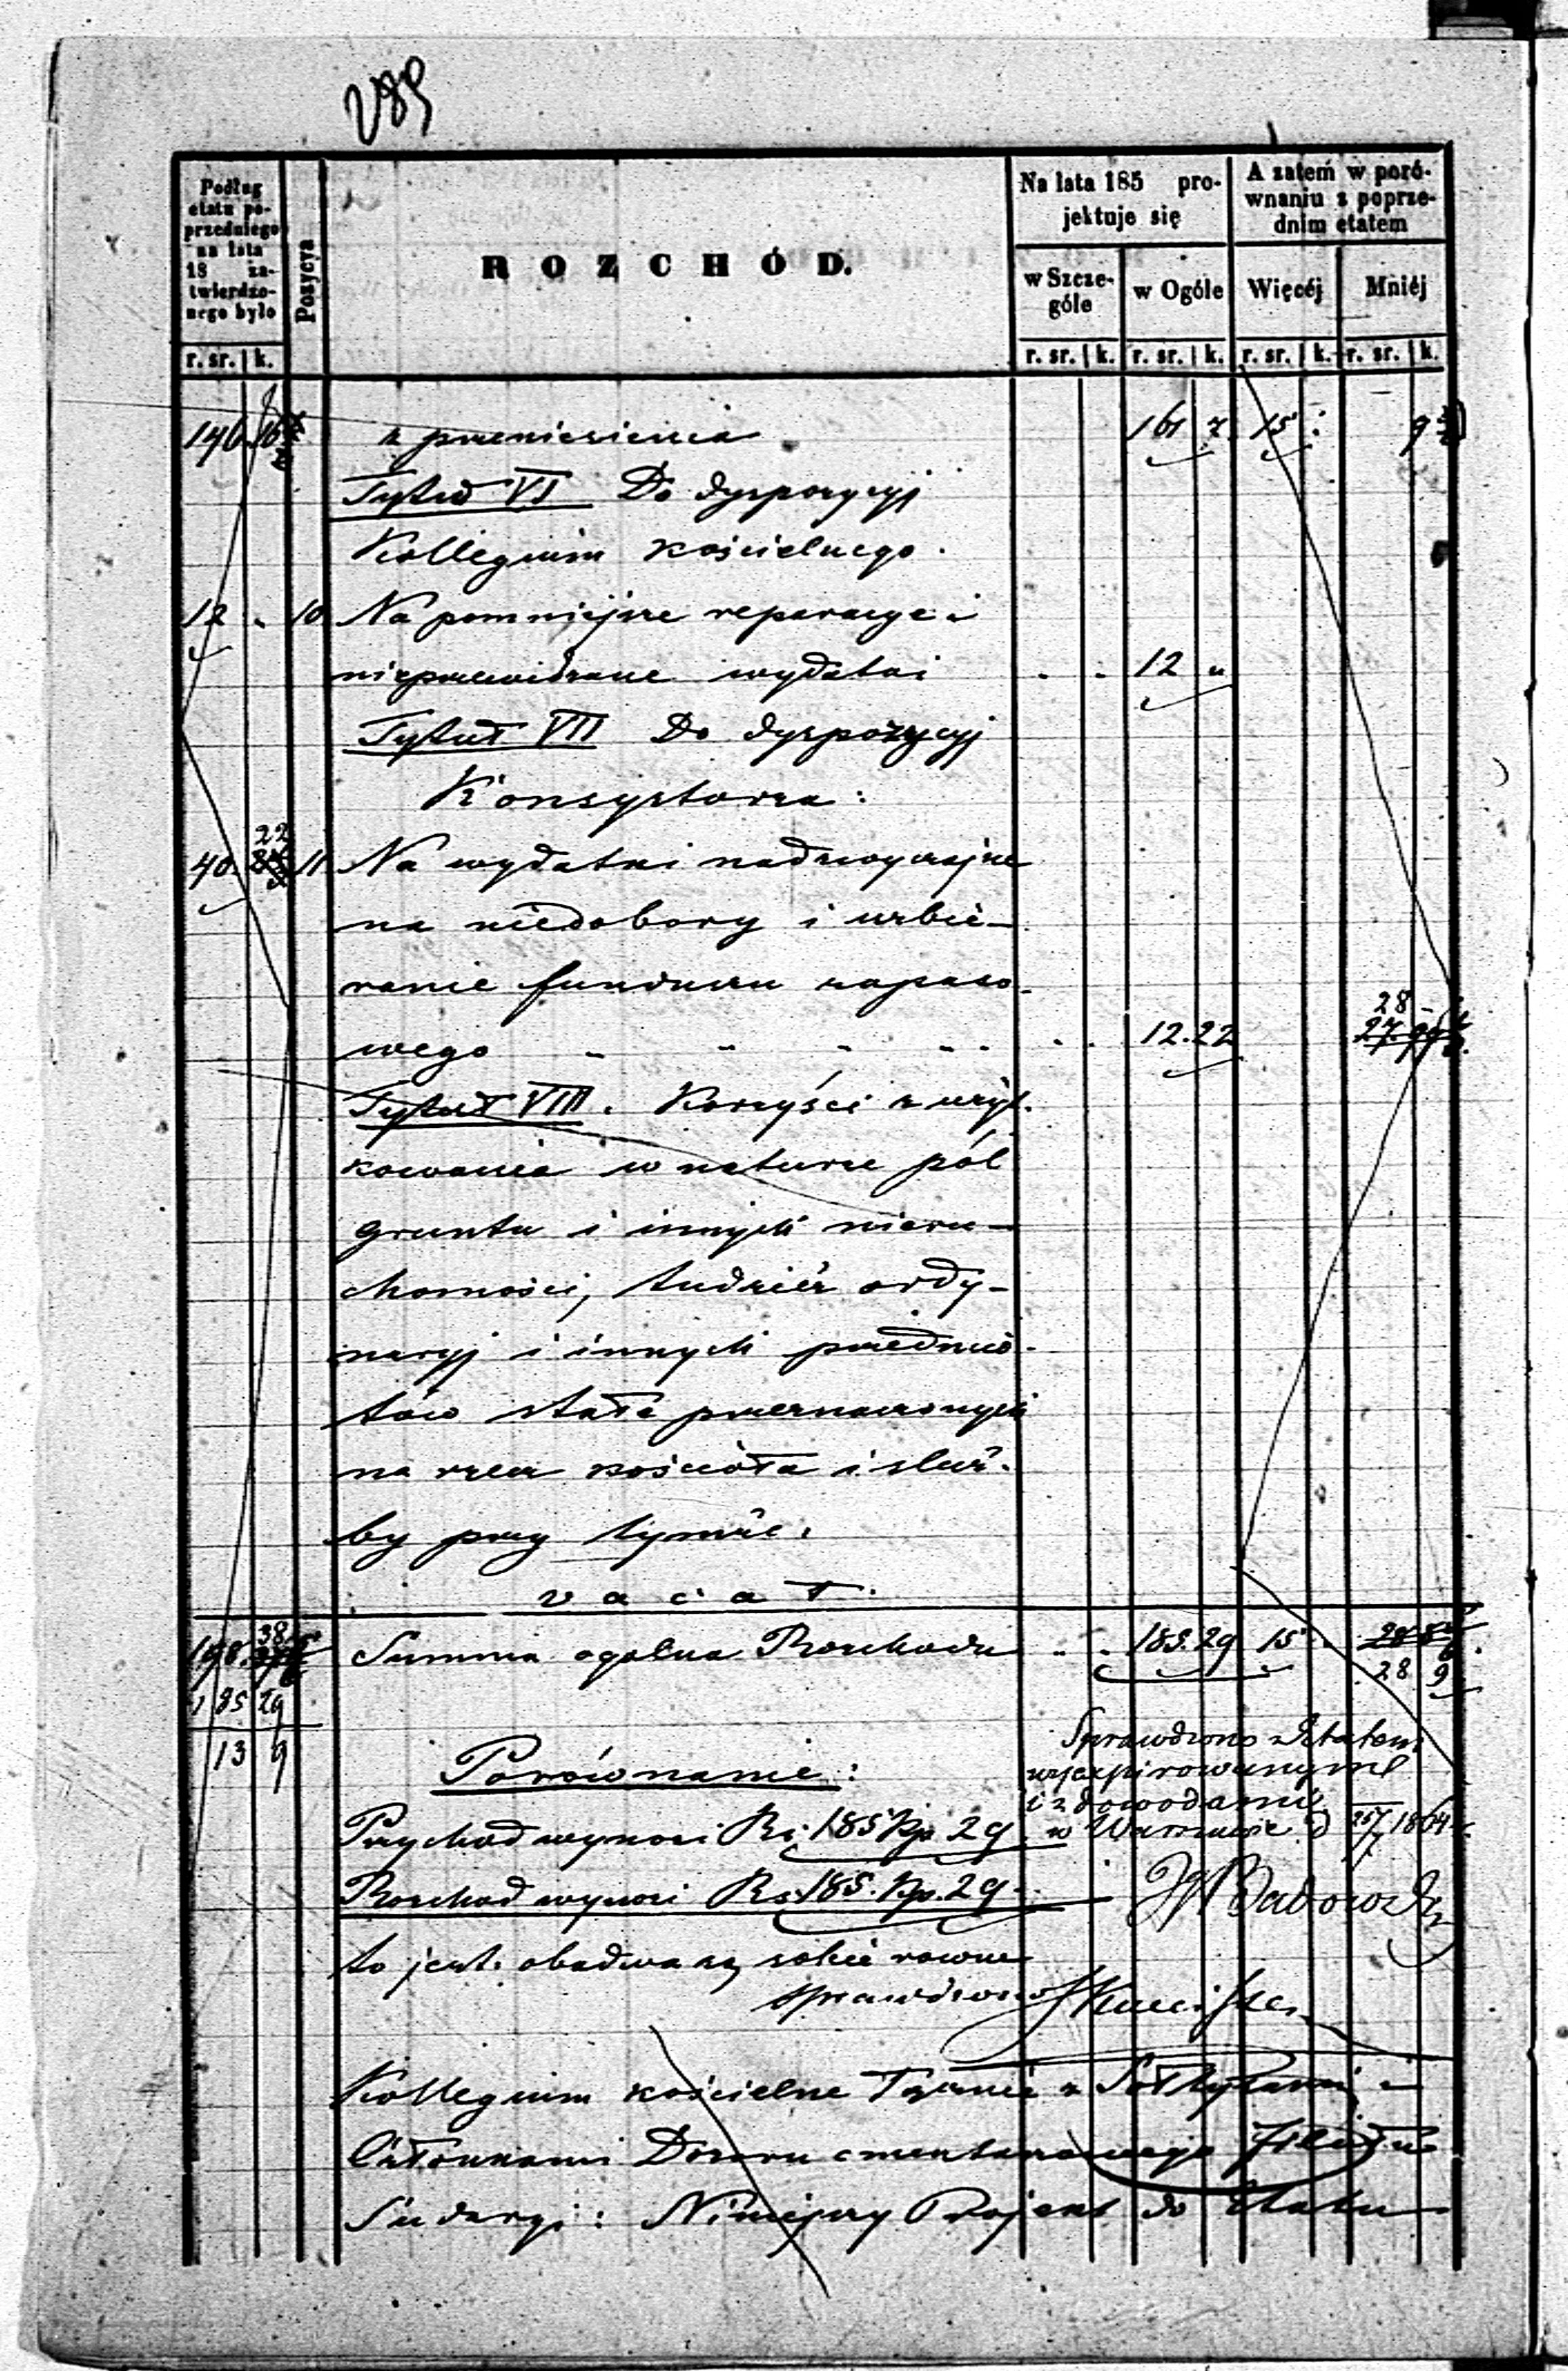 289
Podług etatu poprzedniego na lata 18 zatwierdzonego było
Pozycya
ROZCHÓD.
Na lata 185 projektuje się
A zatem w porównaniu z poprzednim etatem
w Szczególe
w Ogóle
Więcéj
Mniéj
r. sr. k. r. sr. k. r. sr. k. r. sr. k. r. sr. k.
146 16 z przeniesienia 161 7 15 9
Tytuł VI Do dyspozycyj
Kollegium kościelnego.
12 " 10 Na pomniejsze reparacye i
nieprzewidziane wydatki 12 "
Tytuł VII Do dyspozycyj
Konsystorza:
22
40. 11 Na wydatki nadzwyczajne
na niedobory i uzbie-
ranie funduszu zapaso-
28 -
wego 12.22 27.
Tytuł VIII. Korzyści z użyt-
kowania w naturze pól
gruntu i innych nieru-
chomości, tudzież ordy-
naryj i innych przedmio-
tów stale przeznaczonych
na rzecz kościoła i służ-
by przy tymże.
vacat.
38
198. Summa ogólna Rozchodu 185.29 15
28 9
185 29
13 9
Sprawdzono z Etatem
Porównanie:
wyexpirowanym
i z dowodami
Przychód wynosi Rs. 185 Kp. 29 w Warszawie d 1864
Rozchód wynosi Rs. 185. Kp. 29.
to jest. obadwa są sobie rowne
sprawdzono
Kollegium kościelne łącznie z
Członkami Dozoru cmentarnego
Sudargi: Niniejszy Projekt do Etatu